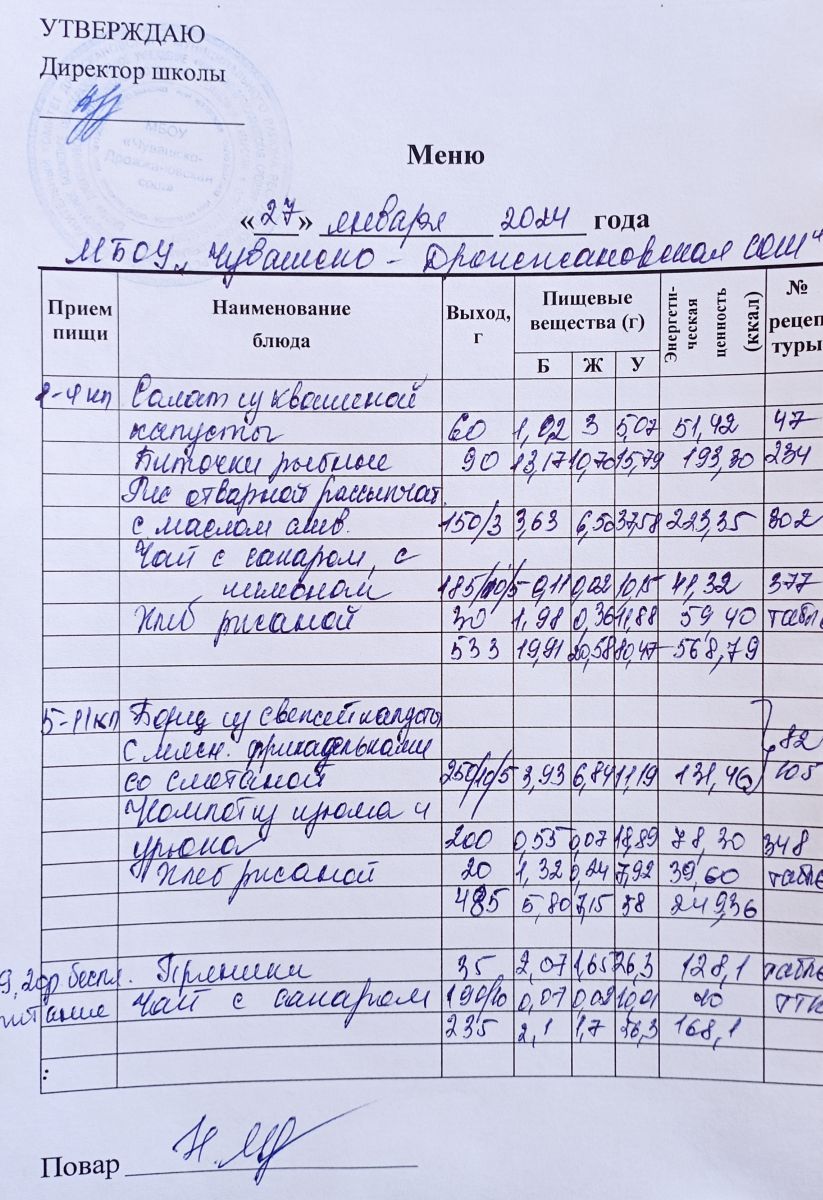 УТВЕРЖДАЮ
Директор школы
МБОУ
«Чувашско-
Дрожжановская
сош»
Меню
«27» января 2024 года
МБОУ „Чувашско - Дрожжановская СОШ"
Прием пищи Наименование блюда Выход, г Пищевые вещества (г) Б Ж У Энергети-ческая ценность (ккал) № рецеп туры
1-4 кл Салат из квашеной
капусты 60 1,02 3 5,07 51,42 47
Биточки рыбные 90 13,17 10,70 15,79 193,30 234
Рис отварной рассыпчат.
с маслом слив. 150/3 3,63 6,50 37,58 223,35 302
Чай с сахаром, с
лимоном 185/10/5 0,11 0,02 10,15 41,32 377
Хлеб ржаной 30 1,98 0,36 11,88 59,40 табле
533 19,91 20,58 80,47 568,79
5-11 кл Борщ из свежей капусты
с мясн. фрикадельками 82
со сметаной 250/10/5 3,93 6,84 11,19 131,46 105
Компот из изюма и
урюка 200 0,55 0,07 18,89 78,30 348
Хлеб ржаной 20 1,32 0,24 7,92 39,60 табле
485 5,80 7,15 38 249,36
беспл. Пряники 35 2,07 1,65 26,3 128,1 табле
питание Чай с сахаром 190/10 0,07 0,02 10,01 40 ТТК
235 2,1 1,7 36,3 168,1
:
Повар